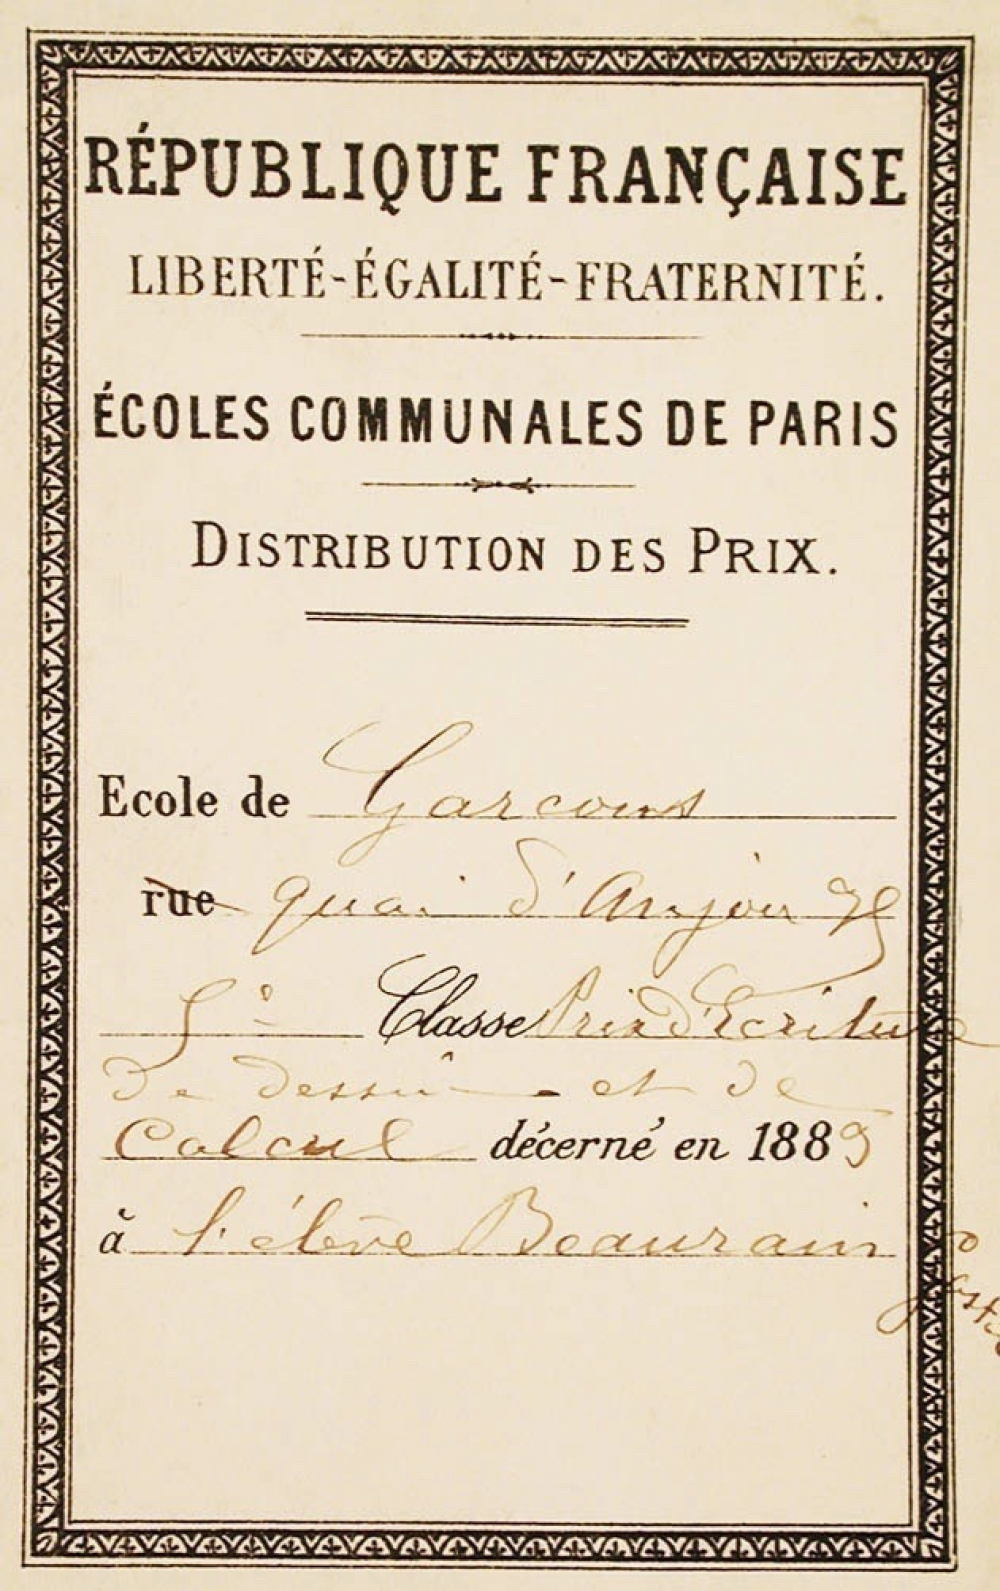 RÉPUBLIQUE FRANÇAISE
LIBERTÉ-ÉGALITÉ-FRATERNITÉ.
ÉCOLES COMMUNALES DE PARIS
DISTRIBUTION DES PRIX.
Ecole de Garcons
rue quai d'Anjou
5e Classe Prix d'Ecriture
De dessin et de
Calcul décerné en 1889
à l'élève Beaurain